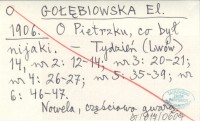 O GOŁĘBIOWSKA El.
1906. O Pietrzku, co był
nijaki. – Tydzień (Lwów)
14, nr 2: 12-14; nr 3: 20-21;
nr 4: 26-27; nr 5: 35-39; nr
6: 46-47.
Nowela, częściowo gwarą.